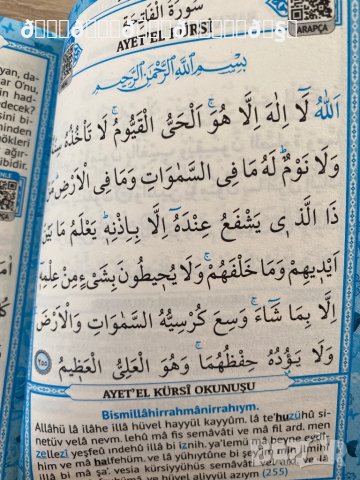 سُورَةُ الْفَاتِحَةِ
AYET'EL KÜRSÎ
ARAPÇA
بِسْمِ اللّٰهِ الرَّحْمٰنِ الرَّحِيمِ
اَللّٰهُ لَٓا اِلٰهَ اِلَّا هُوَۚ اَلْحَىُّ الْقَيُّومُۚ لَا تَأْخُذُهُ
وَلَا نَوْمٌۜ لَهُ مَا فِى السَّمٰوَاتِ وَمَا فِى الْاَرْضِۜ
ذَا الَّذٖى يَشْفَعُ عِنْدَهُٓ اِلَّا بِاِذْنِهٖۜ يَعْلَمُ مَا
اَيْدٖيهِمْ وَمَا خَلْفَهُمْۚ وَلَا يُحٖيطُونَ بِشَىْءٍ مِنْ عِلْمِهٖٓ
اِلَّا بِمَا شَٓاءَۚ وَسِعَ كُرْسِيُّهُ السَّمٰوَاتِ وَالْاَرْضَ
وَلَا يَؤُدُهُ حِفْظُهُمَاۚ وَهُوَ الْعَلِىُّ الْعَظٖيمُ ﴿٢٥٥﴾
AYET'EL KÜRSÎ OKUNUŞU
Bismillâhirrahmânirrahıym.
Allâhü lâ ilâhe illâ hüvel hayyül kayyûm. lâ te'huzühû si-
netüv velâ nevm. lehû mâ fis semâvâti ve mâ fil ard. men
zellezî yeşfeu indehû illâ bi iznih. ya'lemü mâ beyne eydî-
him ve mâ halfehüm. ve lâ yühıytûne bi şey'
illâ bi mâ şa'. vesia kürsiyyühüs semâvâti vel ard. ve lâ
(255)